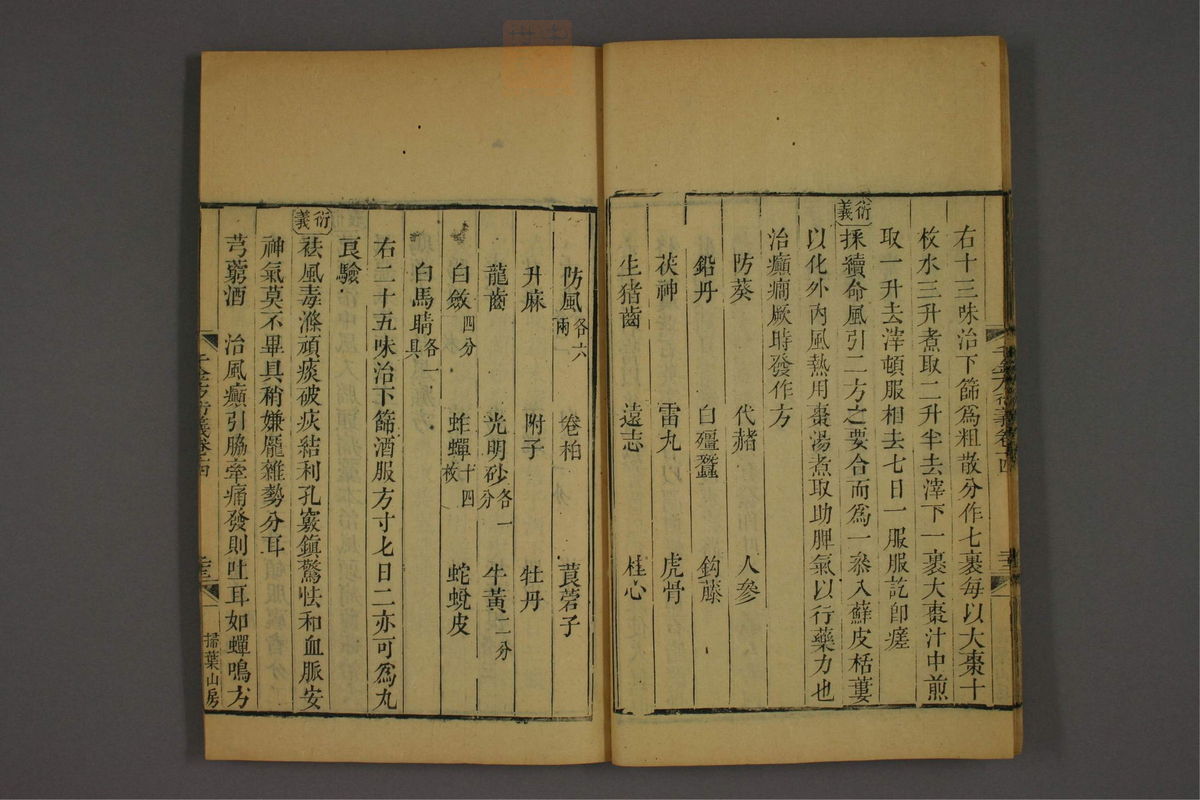 右十三味治下篩為粗散分作七裹每以大棗十
枚水三升煮取二升半去滓下一裹大棗汁中煎
取一升去滓頓服相去七日一服服訖卽瘥
衍義
採續命風引二方之要合而為一叅入蘇皮栝蔞
以化外內風熱用棗湯煮取助脾氣以行藥力也
治癲癎厥時發作方
防葵 代赭 人參
鉛丹 白殭蠶 鈎藤
茯神 雷丸 虎骨
生猪齒 遠志 桂心
防風各六兩 卷柏 莨菪子
升麻 附子 牡丹
龍齒 光明砂各一分 牛黃二分
白斂四分 蚱蟬十四枚 蛇蛻皮
白馬睛各一具
右二十五味治下篩酒服方寸匕日二亦可為丸
良驗
衍義
祛風毒滌頑痰破痰結利孔竅鎮驚怯和血脈安
神氣莫不畢具稍嫌龐雜勢分耳
芎藭酒 治風癲引脇牽痛發則吐耳如蟬鳴方
掃葉山房